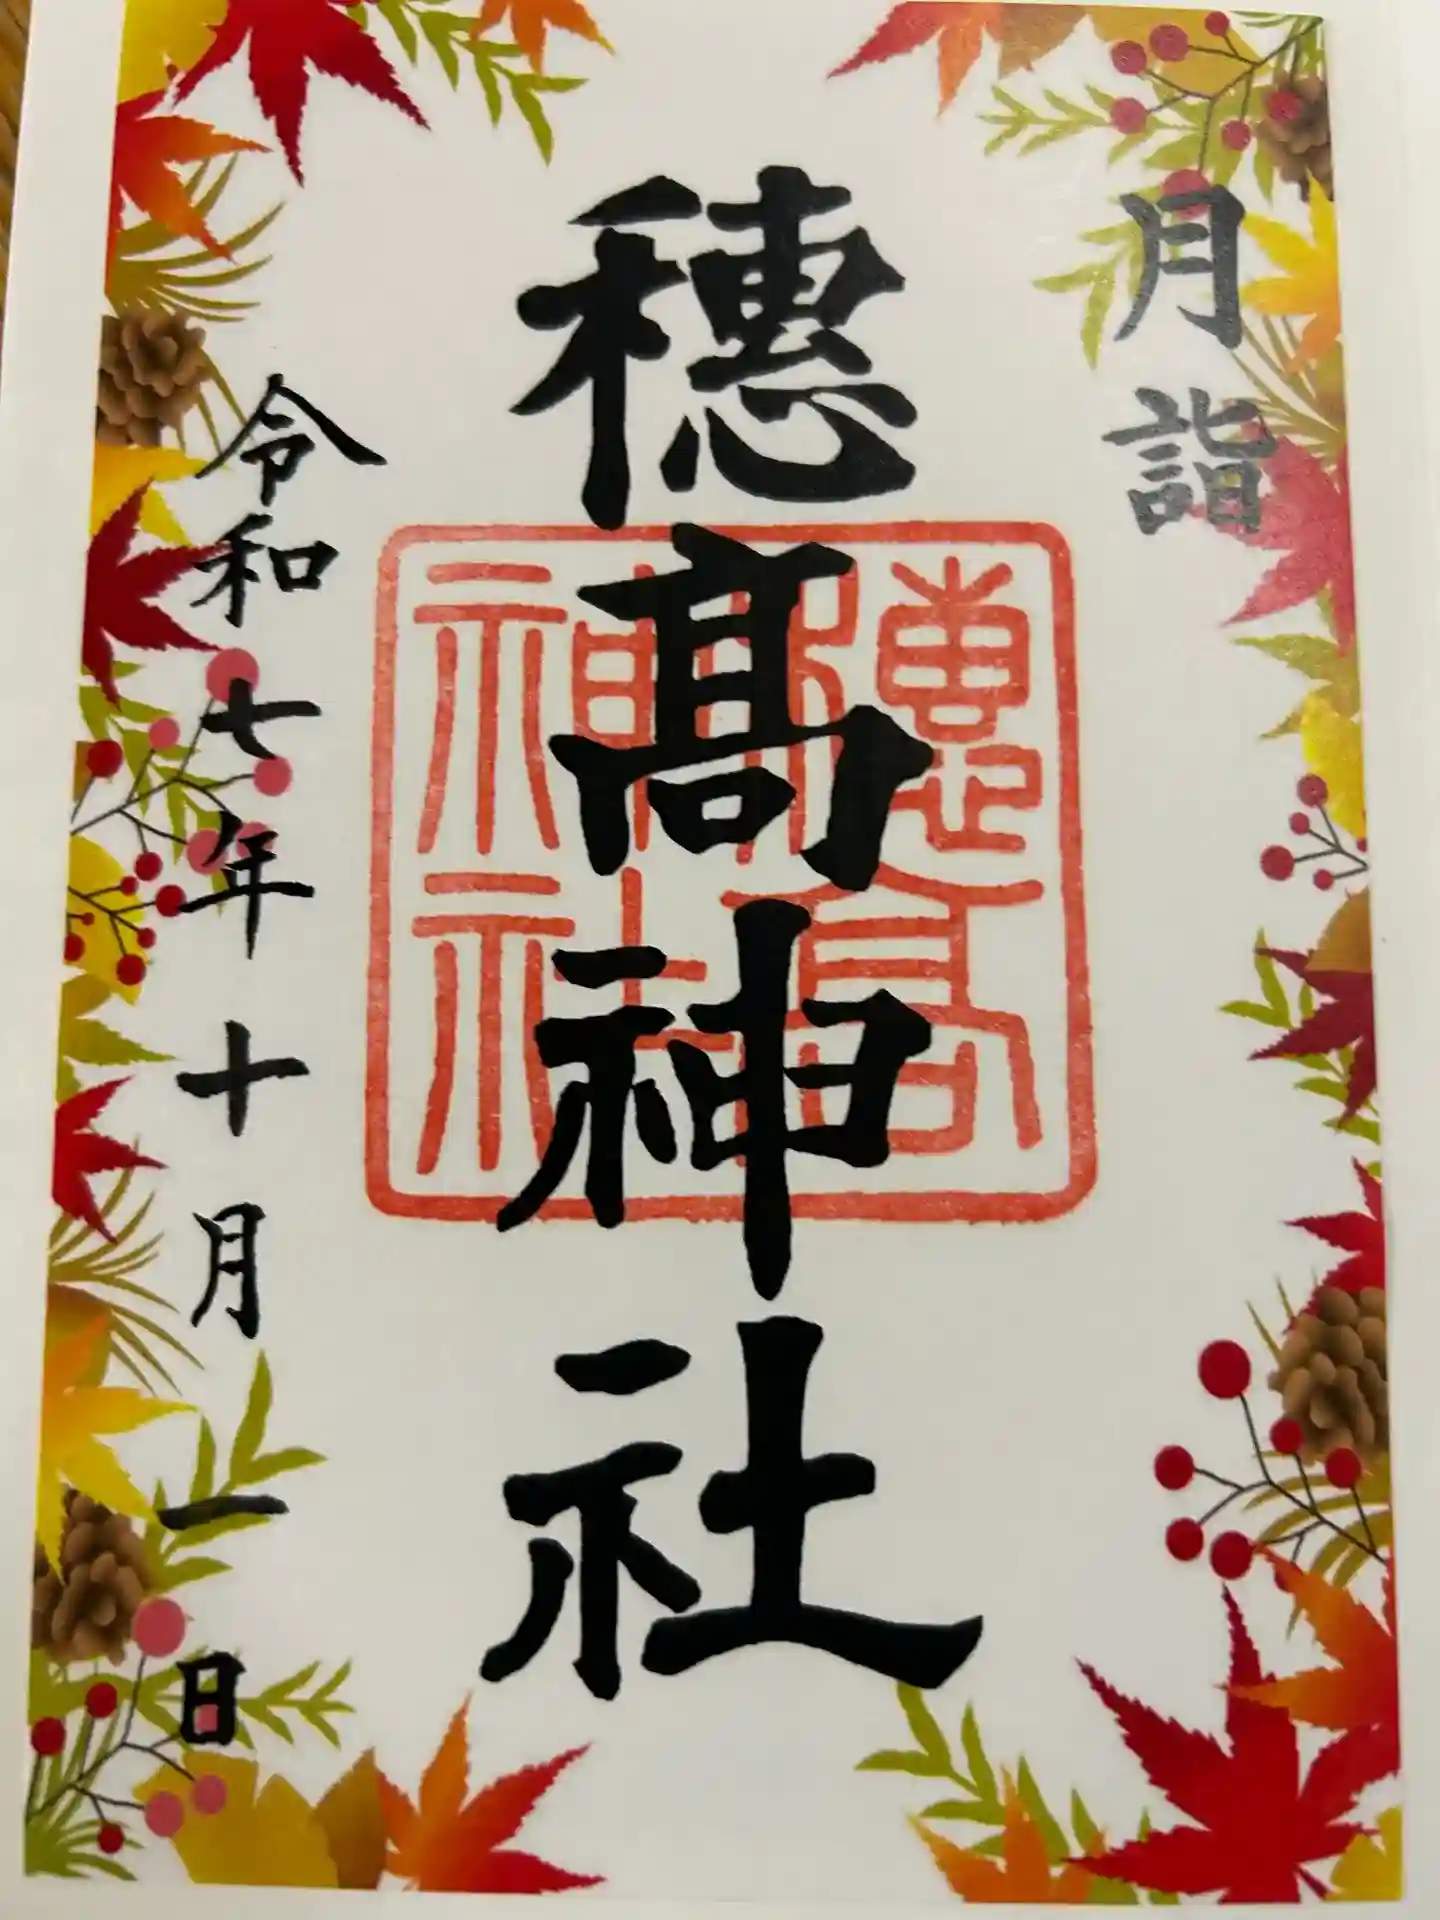 月詣
穂髙神社
穂髙
神社
令和七年十月一日